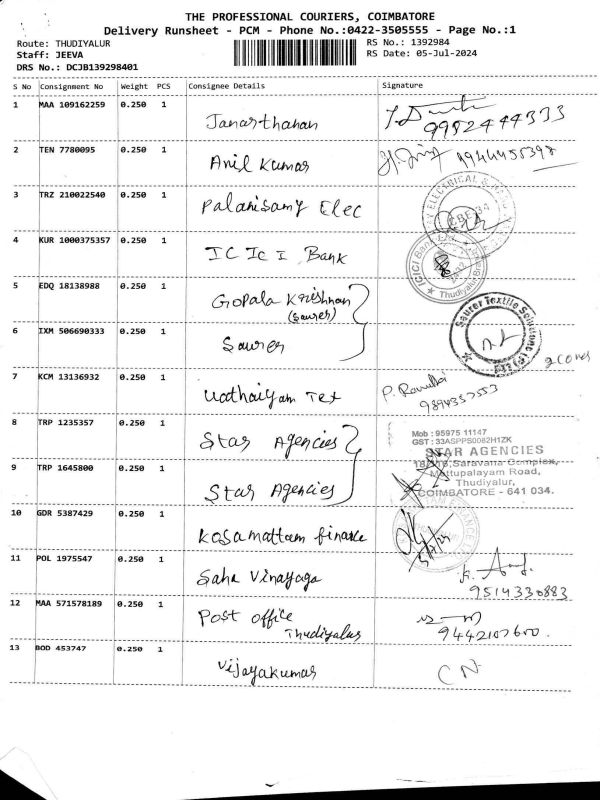 THE PROFESSIONAL COURIERS, COIMBATORE
Delivery Runsheet - PCM - Phone No.:0422-3505555 - Page No.:1
Route: THUDIYALUR
Staff: JEEVA
DRS No.: DCJB139298401
RS No.: 1392984
RS Date: 05-Jul-2024
S No Consignment No Weight PCS Consignee Details Signature
1 MAA 109162259 0.250 1 Janarthanan
9952444333
2 TEN 7780095 0.250 1 Anil Kumar
3 TRZ 210022540 0.250 1 Palanisamy Elec
4 KUR 1000375357 0.250 1 ICICI Bank
ICICI Bank
Thudiyalur
5 EDQ 18138988 0.250 1 Gopala Krishnan
(Saurer)
6 IXM 506690333 0.250 1 Saurer
Saurer Textile Solutions (P)
7 KCM 13136932 0.250 1 Udthaiyam Tex
9894357553
8 TRP 1235357 0.250 1 Star Agencies
Mob : 95975 11147
GST : 33ASPPS0082H1ZK
STAR AGENCIES
Saravana Complex,
Mettupalayam Road,
Thudiyalur,
COIMBATORE - 641 034.
9 TRP 1645800 0.250 1 Star Agencies
10 GDR 5387429 0.250 1 Kosamattam finance
5/7/24
11 POL 1975547 0.250 1 Saha Vinayaga
9514330883
12 MAA 571578189 0.250 1 Post office
Thudiyalur
9442107600.
13 BOD 453747 0.250 1 Vijayakumar CN